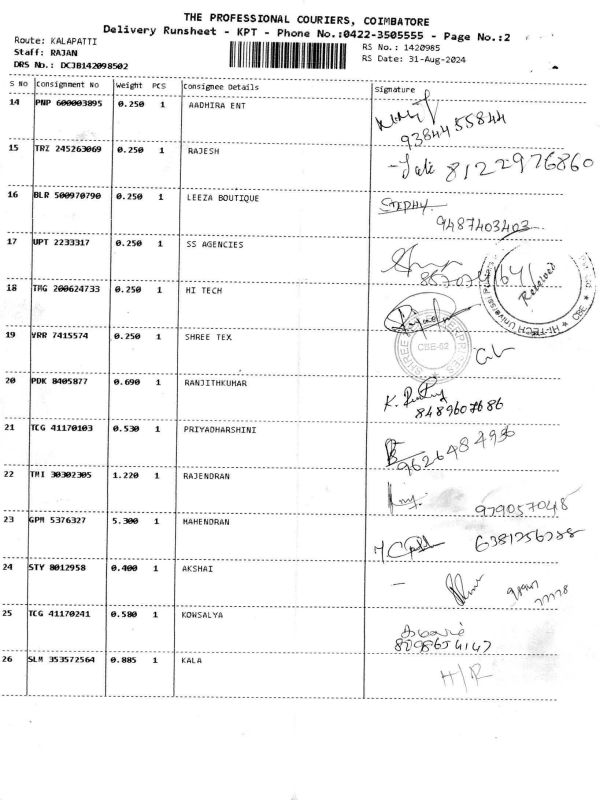 THE PROFESSIONAL COURIERS, COIMBATORE
Delivery Runsheet - KPT - Phone No.:0422-3505555 - Page No.:2
Route: KALAPATTI
Staff: RAJAN
DRS No.: DCJB142098502
RS No.: 1420985
RS Date: 31-Aug-2024
S No Consignment No Weight PCS Consignee Details Signature
14 PNP 600003895 0.250 1 AADHIRA ENT
9384455844
15 TRZ 245263069 0.250 1 RAJESH
8122976860
16 BLR 500970790 0.250 1 LEEZA BOUTIQUE STEPHY
9487403403
17 UPT 2233317 0.250 1 SS AGENCIES
18 TMG 200624733 0.250 1 HI TECH
Received
HI-TECH
CBE
19 VRR 7415574 0.250 1 SHREE TEX
SHREE
CBE-62
20 PDK 8405877 0.690 1 RANJITHKUHAR
8489607686
21 TCG 41170103 0.530 1 PRIYADHARSHINI
9626484936
22 TMI 30302305 1.220 1 RAJENDRAN
979057048
23 GPM 5376327 5.300 1 MAHENDRAN
6381256288
24 STY 8012958 0.400 1 AKSHAI
25 TCG 41170241 0.580 1 KOWSALYA
8098654147
26 SLM 353572564 0.885 1 KALA
H/R